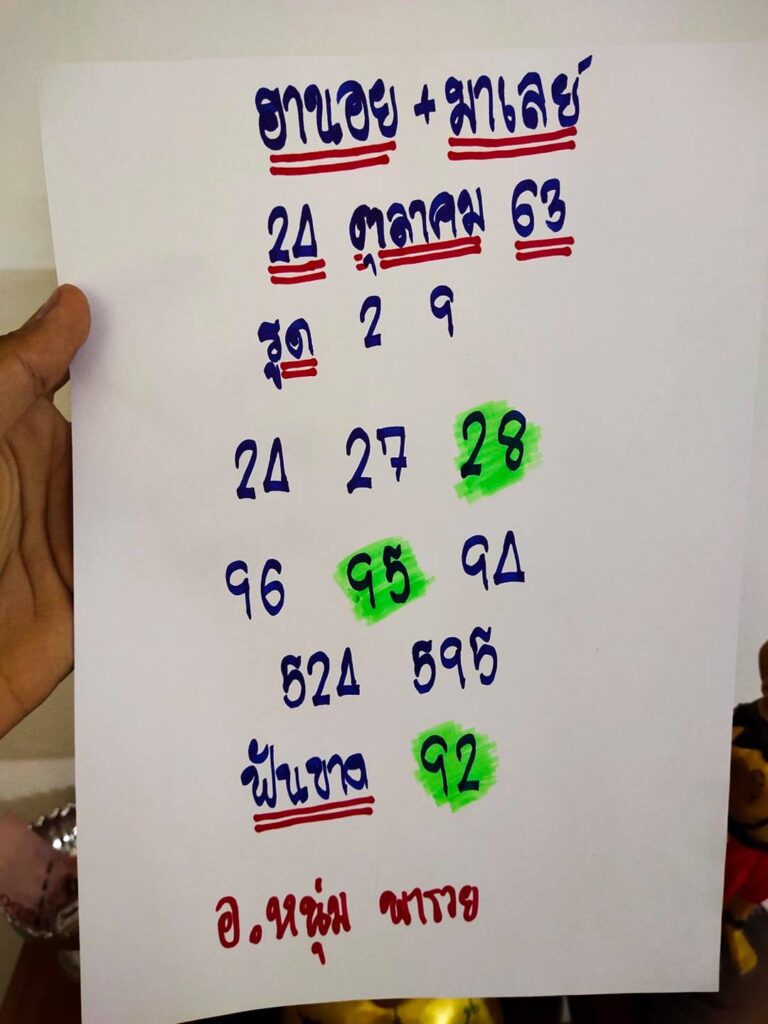 ฮานอย + มาเลย์
24 ตุลาคม 63
รูด 2 9
24 27 28
96 95 94
524 595
ฟันขาด 92
อ.หนุ่ม พารวย